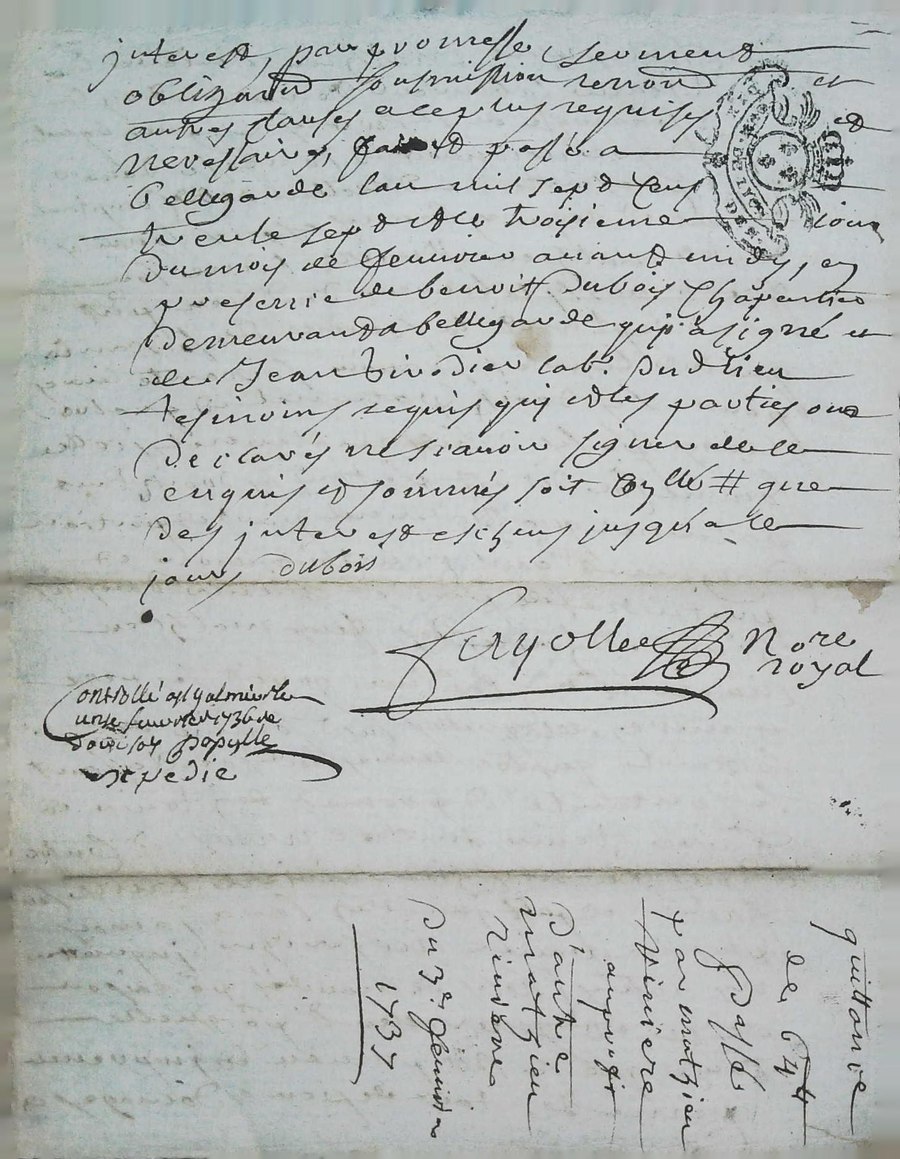 interest, par promesse serment
obligaon soumission renon et
autres clauses a ce plus requises et
necessaires, fait et passé a
bellegarde lan mil sept cens
trente sept et le troisieme jour
du mois de jenvier avant midy, en
presence de benoitt dubois Charpentier
demeurant a bellegarde qui a signé et
de Jean lab.r dud lieu
tesmoins requis qui et les parties ont
declarés ne scavoir signer de ce
enquis et sommés soit # que
des interest escheus jusqua ce
jour dubois
fayolle Nore
royal
Controllé a st galmier le
fevrier
st pedie
quittance
de 64 #
passé
par matzieu
au profit
d'autre
matzieu
du 3e. jenvier
1737